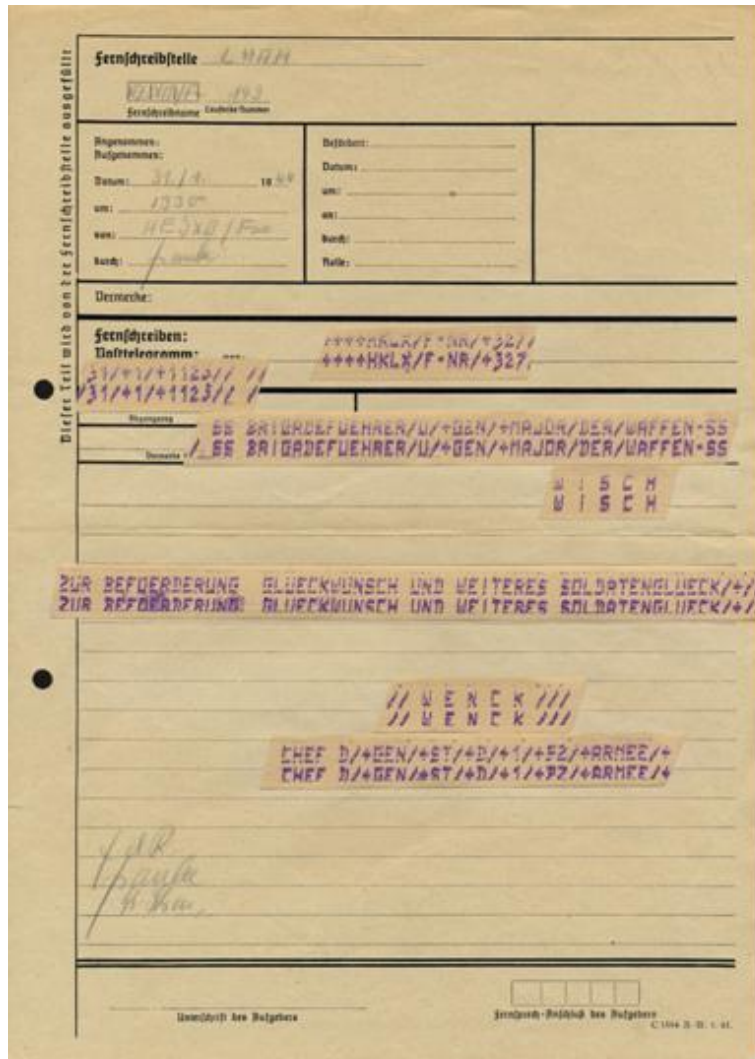 Dieser Teil wird von der Fernschreibstelle ausgefüllt
Fernschreibstelle LHAH
Fernschreibname Laufende Nummer
Angenommen:
Aufgenommen:
Datum: 31./1. 19 44
um: 1335
von:
durch:
Befördert:
Datum:
um:
an:
durch:
Rolle:
Vermerke:
Fernschreiben:
Posttelegramm: von:
++++HKLX/F+NR/+327/
++++HKLX/F+NR/+327/
/31/+1/+1123// //
/31/+1/+1123// /
Abgangstag
Vermerke
SS BRIGADEFUEHRER/U/+GEN/+MAJOR/DER/WAFFEN-SS
/ SS BRIGADEFUEHRER/U/+GEN/+MAJOR/DER/WAFFEN-SS
W I S C H
W I S C H
ZUR BEFOERDERUNG GLUECKWUNSCH UND WEITERES SOLDATENGLUECK/+/
ZUR BEFOERDERUNG GLUECKWUNSCH UND WEITERES SOLDATENGLUECK/+/
// W E N C K ///
// W E N C K ///
CHEF D/+GEN/+ST/+D/+1/+PZ/+ARMEE/+
CHEF D/+GEN/+ST/+D/+1/+PZ/+ARMEE/+
Unterschrift des Aufgebers
Fernsprech-Anschluß des Aufgebers